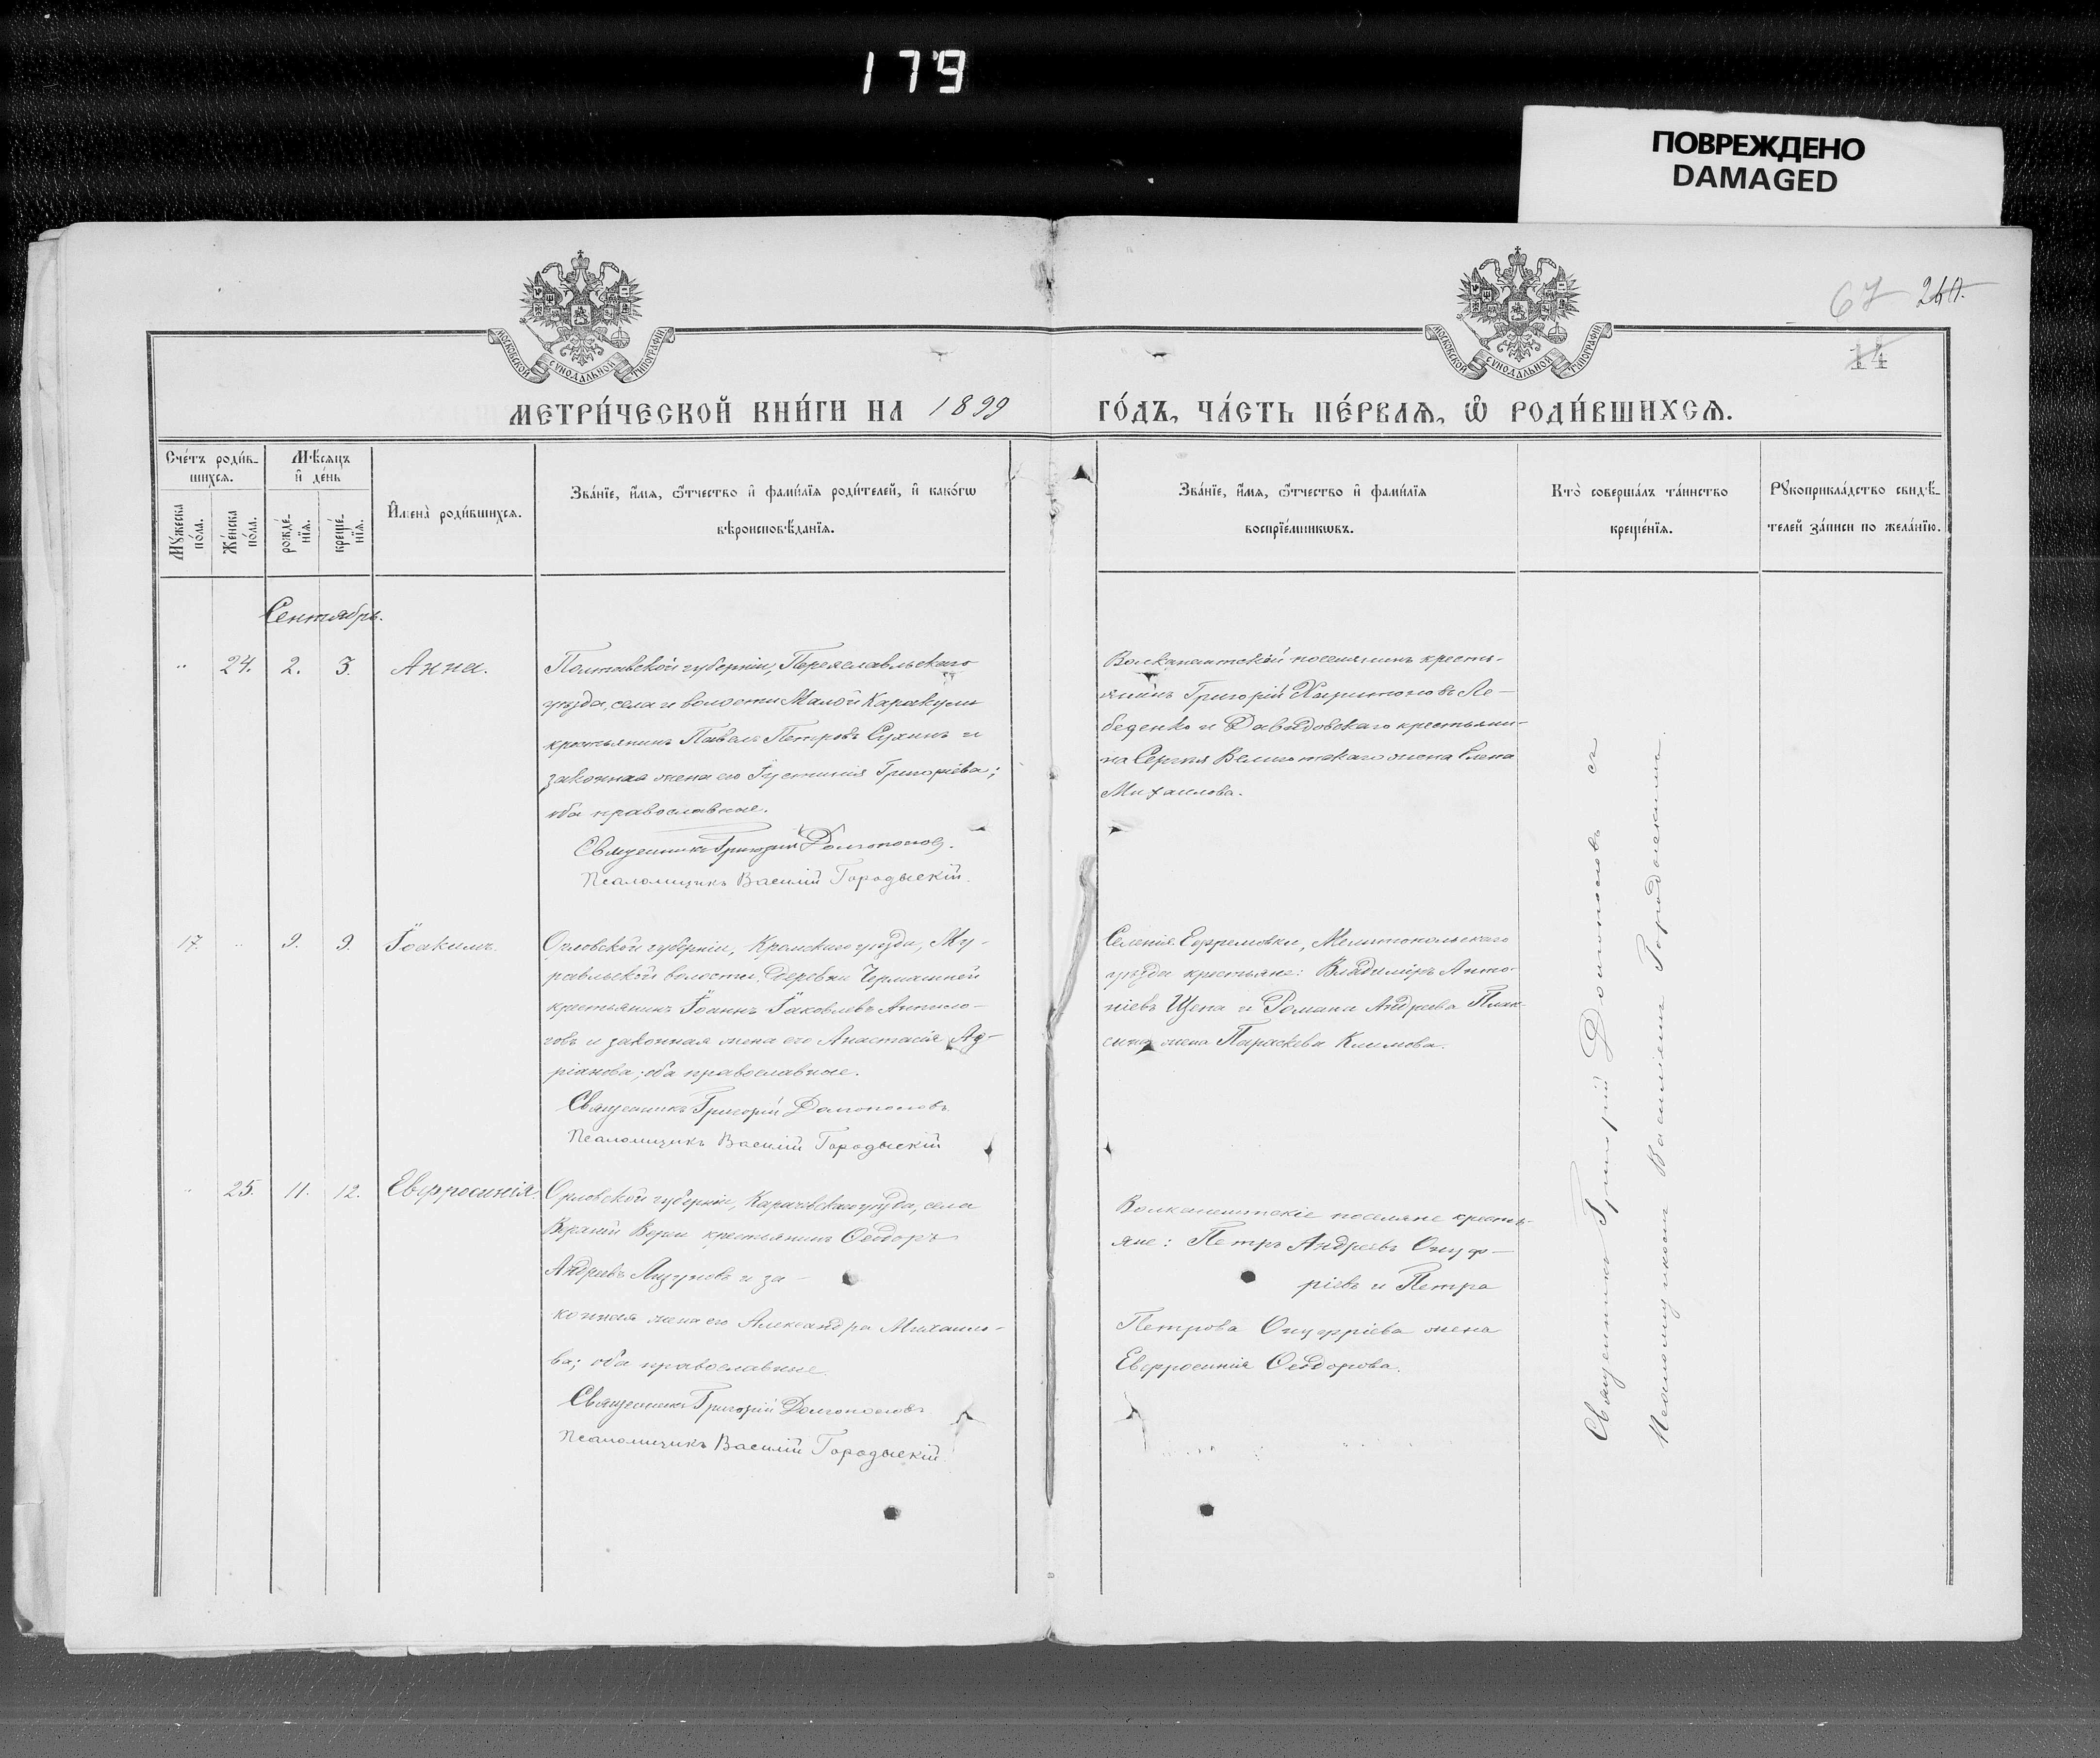 179
ПОВРЕЖДЕНО
DAMAGED
67 260.
14
МОСКОВСКОЙ СУНОДАЛЬНОЙ ТИПОГРАФІИ
МОСКОВСКОЙ СУНОДАЛЬНОЙ ТИПОГРАФІИ
МЕТРИ́ЧЕСКОЙ КНИ́ГИ НА 1899 ГО́ДЪ, ЧА́СТЬ ПЕ́РВАЯ, Ѽ РОДИ́ВШИХСЯ.
Сче́тъ роди́в-
шихся.
Мѣ́сяцъ
и҆ де́нь
Мꙋ́жеска
по́ла.
Же́нска
по́ла.
рожде́-
нїя.
креще́-
нїя.
И҆мена̀ роди́вшихся.
Зва́нїе, и҆́мя, ѻ҆́тчество и҆ фами́лїя роди́телей, и҆ како́гѡ
вѣроисповѣ́данїя.
Зва́нїе, и҆́мя, ѻ҆́тчество и҆ фами́лїя
воспрїе́мникѡвъ.
Кто̀ соверша́лъ та́инство
креще́нїя.
Рꙋкоприкла́дство свидѣ́-
телей за́писи по жела́нїю.
Сентябрь.
" 24. 2. 3. Анна.
Полтавской губерніи, Переяславльскаго
уѣзда, села и волости Малой Каратули
крестьянинъ Павелъ Петровъ Сухинъ и
законная жена его Іустинія Григоріева;
оба православные.
Священникъ Григорій Долгополовъ.
Псаломщикъ Василій Городыскій.
Волканештскій поселянинъ кресть-
янинъ Григорій Харитоновъ Ле-
беденко и Давыдовскаго крестьяни-
на Сергія жена Елена
Михаилова.
17. " 9. 9. Іоакимъ.
Орловской губерніи, Кромскаго уѣзда, Му-
равльской волости, деревни Чермошной
крестьянинъ Іоаннъ Іаковлевъ
и законная жена его Анастасія Ад-
ріанова; оба православные.
Священникъ Григорій Долгополовъ
Псаломщикъ Василій Городыскій
Селенія Ефремовки, Мелитопольскаго
уѣзда крестьяне: Владиміръ Анто-
ніевъ Щепа и Романа Андреева Плак-
сина жена Параскева Климова.
" 25. 11. 12. Евфросинія.
Орловской губерніи, Карачевскаго уѣзда, села
крестьянинъ Ѳеодоръ
Андреевъ Лизуновъ и за-
конная жена его Александра Михаило-
ва; оба православные.
Священникъ Григорій Долгополовъ
Псаломщикъ Василій Городыскій.
Волканештскіе поселяне кресть-
яне: Петръ Андреевъ Онуф-
ріевъ и Петра
Петрова Онуфріева жена
Евфросинія Ѳеодорова.
Священникъ Григорій Долгополовъ съ
Псаломщикомъ Василіемъ Городыскимъ.